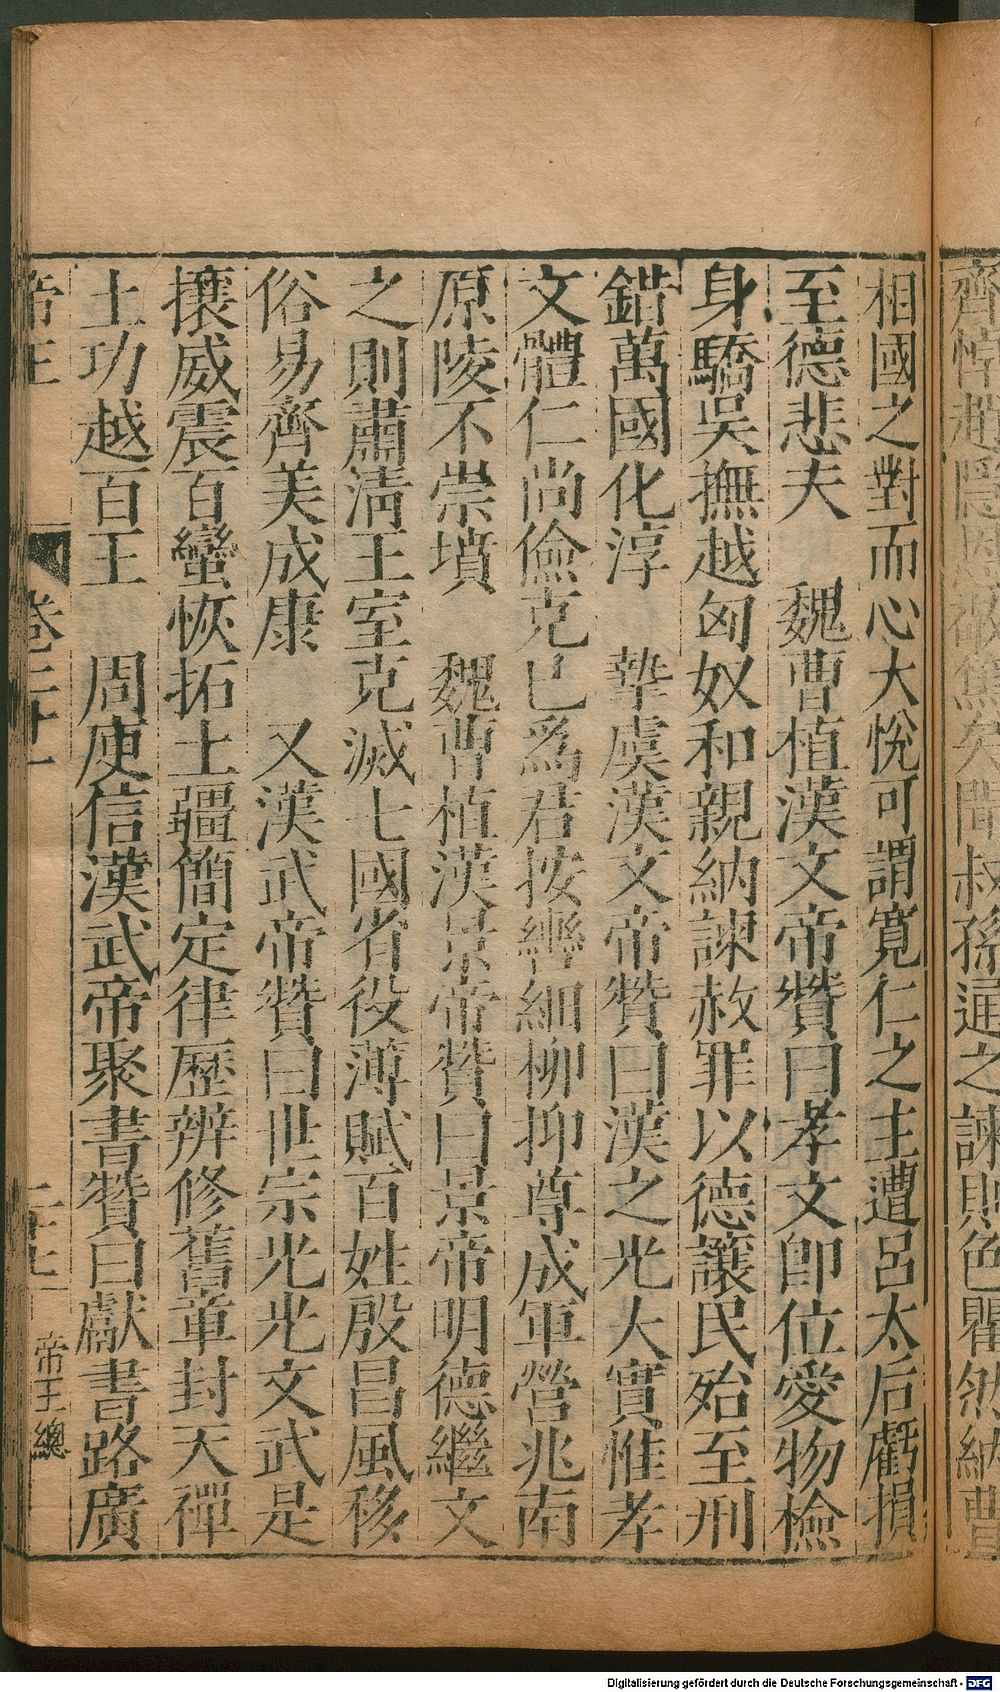 齊悼趙隱恩敬篤矣聞叔孫通之諫則色瞿然納曹
相國之對而心大悅可謂寬仁之主遭呂太后虧損
至德悲夫　魏曹植漢文帝贊曰孝文即位愛物檢
身驕吳撫越匈奴和親納諫赦罪以德讓民殆至刑
錯萬國化淳　摯虞漢文帝贊曰漢之光大實惟孝
文體仁尚儉克己爲君按轡細柳抑尊成軍營兆南
原陵不崇墳　魏曹植漢景帝贊曰景帝明德繼文
之則肅清王室克滅七國省役薄賦百姓殷昌風移
俗易齊美成康　又漢武帝贊曰世宗光光文武是
攘威震百蠻恢拓土疆簡定律歷辨修舊章封天禪
土功越百王　周庾信漢武帝聚書贊曰獻書路廣
帝王　卷二十一　二十七　帝王總
Digitalisierung gefördert durch die Deutsche Forschungsgemeinschaft - DFG